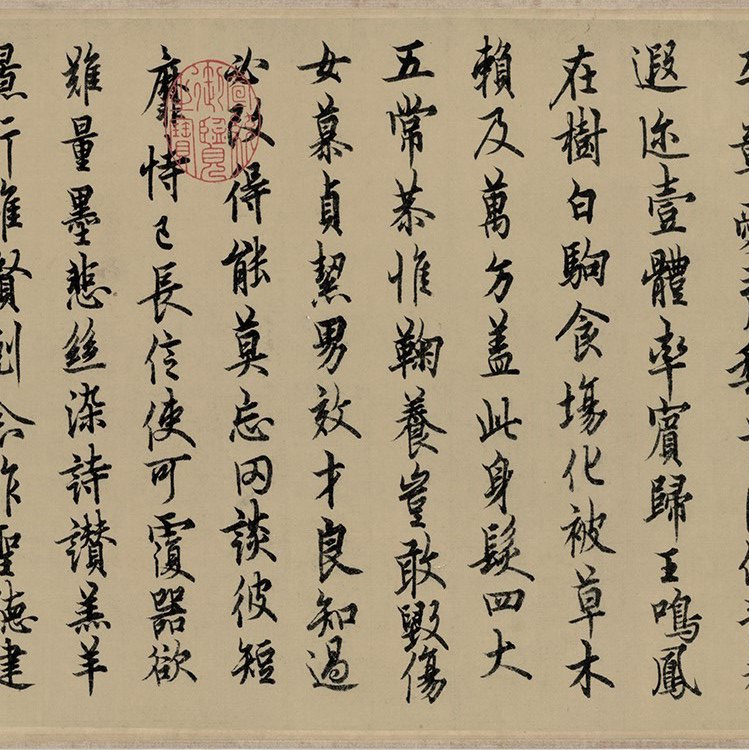 遐迩壹體率賓歸王鳴鳳
在樹白駒食場化被草木
賴及萬方蓋此身髮四大
五常恭惟鞠養豈敢毀傷
女慕貞絜男效才良知過
必改得能莫忘罔談彼短
靡恃己長信使可覆器欲
難量墨悲絲染詩讚羔羊
景行維賢剋念作聖德建
御覽
之寶